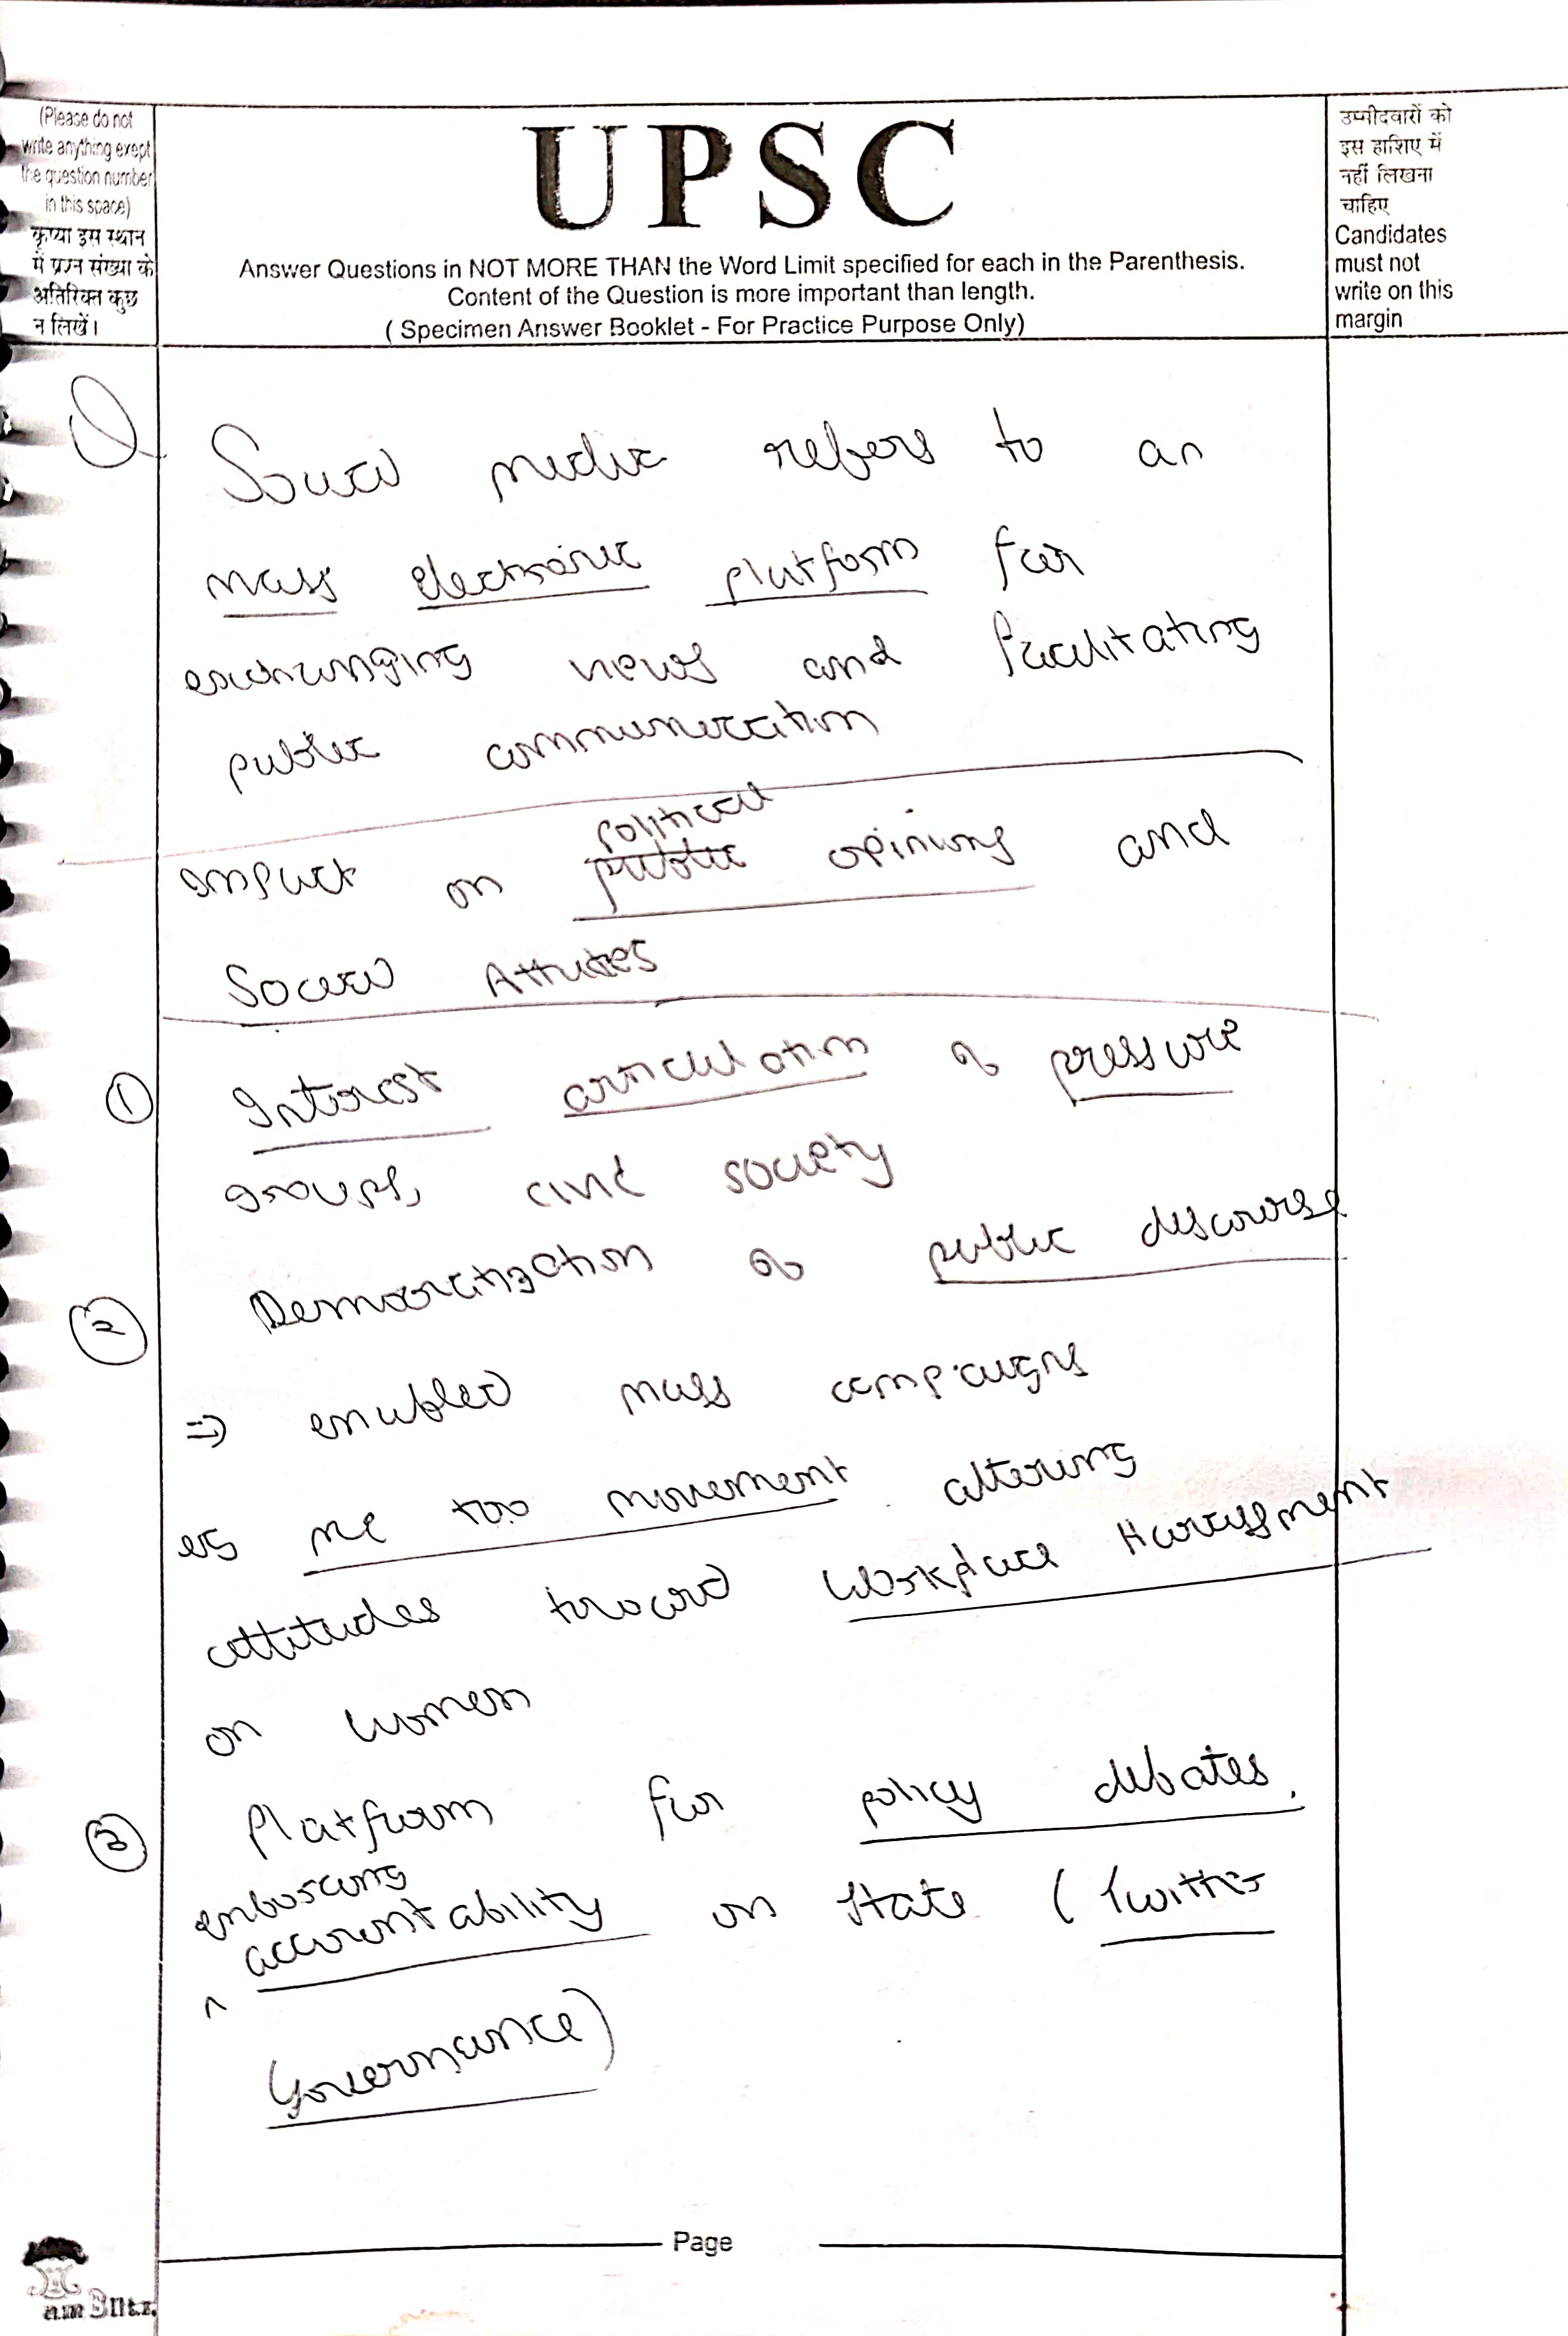 (Please do not
write anything exept
the question number
in this space)
कृप्या इस स्थान
में प्रश्न संख्या के
अतिरिक्त कुछ
न लिखें।
UPSC
Answer Questions in NOT MORE THAN the Word Limit specified for each in the Parenthesis.
Content of the Question is more important than length.
( Specimen Answer Booklet - For Practice Purpose Only)
उम्मीदवारों को
इस हाशिए में
नहीं लिखना
चाहिए
Candidates
must not
write on this
margin
Q Social media refers to an
mass electronic platform for
exchanging news and facilitating
public communication
Impact on political opinions and
Social Attitudes
① Interest articulation of pressure
groups, civil society
② Democratization of public discourse
⇒ enabled mass campaigns
eg me too movement altering
attitudes toward Workplace Harassment
on women
③ Platform for policy debates.
accountability on State (Twitter
Governance)
Page